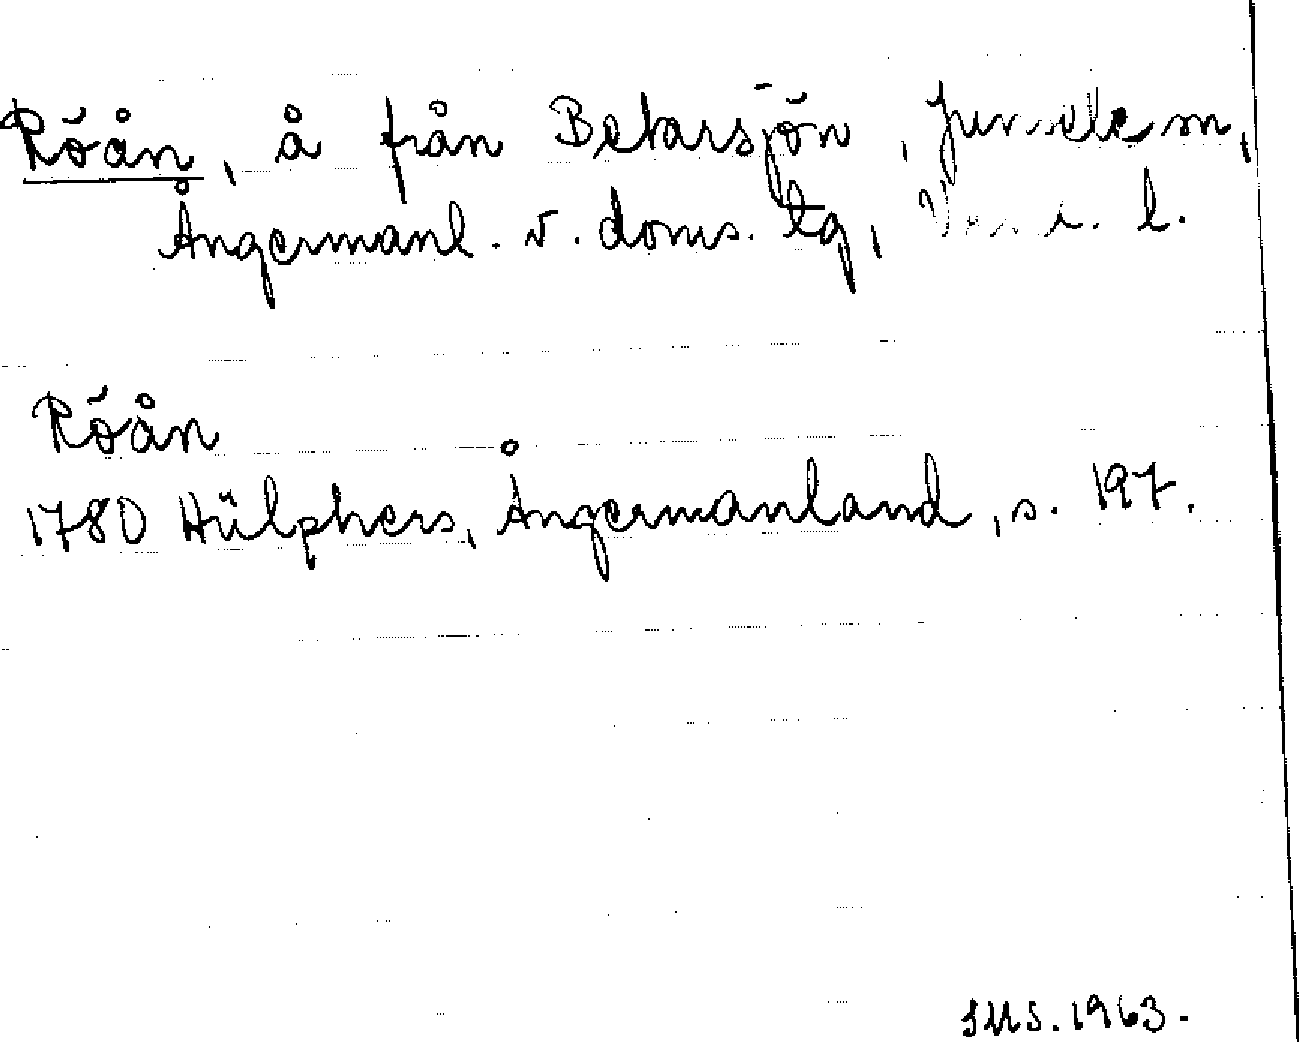 Röån, å från Betarsjön, Junsele sn,
Ångermanl. v. doms. tg, l.
Röån
1780 Hülphers, Ångermanland, s. 197.
SMS. 1963.